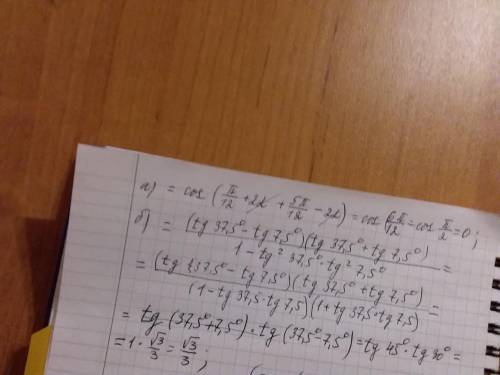 а) = cos (π/12 + 2α + 5π/12 - 2α) = cos 6π/12 = cos π/2 = 0;
б) = (tg 37,5° - tg 7,5°)(tg 37,5° + tg 7,5°) / 1 - tg² 37,5° · tg² 7,5° =
= (tg 37,5° - tg 7,5°)(tg 37,5° + tg 7,5°) / (1 - tg 37,5 · tg 7,5)(1 + tg 37,5 · tg 7,5) =
= tg (37,5° + 7,5°) · tg (37,5° - 7,5°) = tg 45° · tg 30° =
= 1 · √3/3 = √3/3;